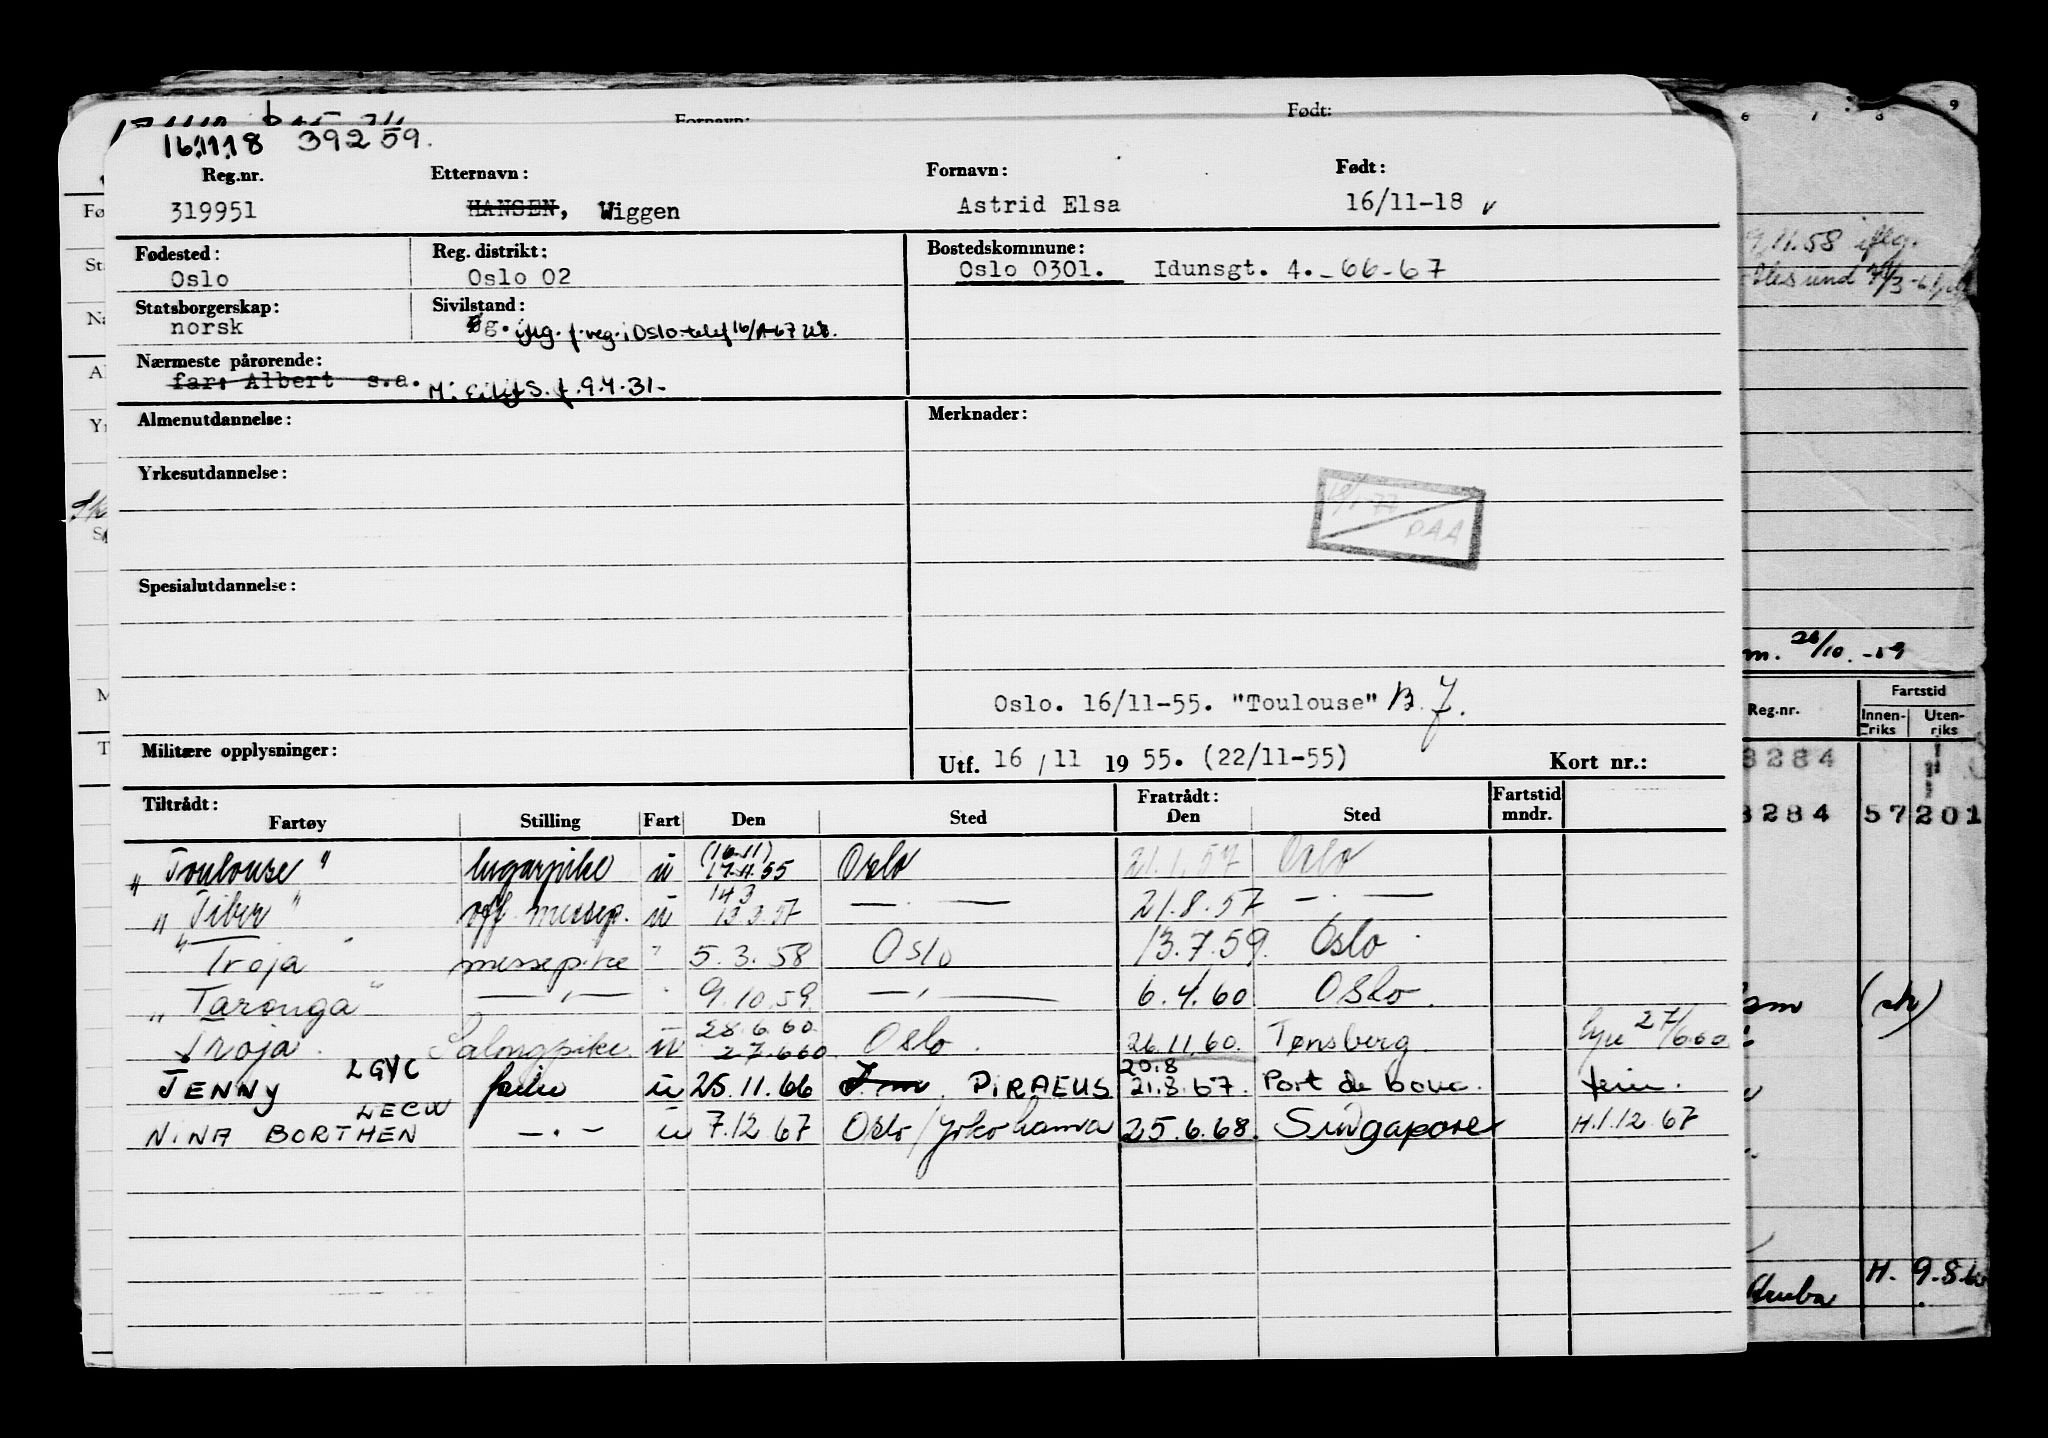 Fornavn: Født:
161118 39259.
Reg.nr. Etternavn: Fornavn: Født:
319951 HANSEN, Wiggen Astrid Elsa 16/11-18
Fødested: Reg. distrikt: Bostedskommune:
Oslo Oslo 02 Oslo 0301. Idunsgt. 4. -66-67
Statsborgerskap: Sivilstand:
norsk g. iflg. f.reg. i Oslo telef
Nærmeste pårørende:
far: Albert s.a. M: Eilif S. f. 9.4.31-
Almenutdannelse: Merknader:
Yrkesutdannelse:
DAA
Spesialutdannelse:
Oslo. 16/11-55. "Toulouse" B.J.
Militære opplysninger: Utf. 16/11 1955. (22/11-55) Kort nr.:
Tiltrådt: Fratrådt: Fartstid
Fartøy Stilling Fart Den Sted Den Sted mndr.
"Toulouse" lugarpike u (16.11) 17.11.55 Oslo 21.1.57 Oslo
"Tiber" off. messep. u 14.3 13.3.57 — . — 21.8.57 — . —
"Troja" messepike " 5.3.58 Oslo 13.7.59. Oslo
"Taronga" — " — " 9.10.59 — " — 6.4.60 Oslo.
Troja. Salongpike. u 28.6.60. 27.6.60. Oslo. 26.11.60. Tønsberg 27/6.60
JENNY LGYC u 25.11.66 PIRAEUS 20.8 21.8.67. Port de bouc.
NINA BORTHEN LECW — . — u 7.12.67 Oslo/Yokohama 25.6.68. Singapore H.1.12.67
9.11.58 iflg.
m. 26/10.-59
Reg.nr. Fartstid
Innenriks Utenriks
3284
3284 57 201
(sk)
Aruba H. 9.8.60